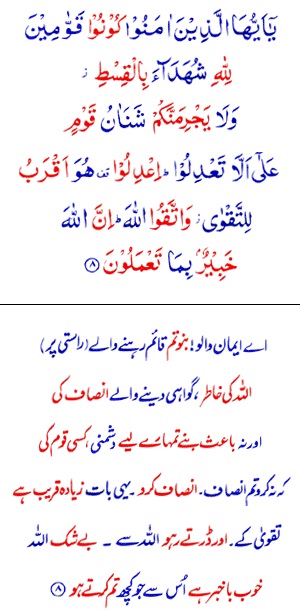 يٰۤاَيُّهَا الَّذِيْنَ اٰمَنُوْا كُوْنُوْا قَوّٰمِيْنَ
لِلّٰهِ شُهَدَآءَ بِالْقِسْطِ ز
وَلَا يَجْرِمَنَّكُمْ شَنَاٰنُ قَوْمٍ
عَلٰٓى اَلَّا تَعْدِلُوْا ؕ اِعْدِلُوْا قف هُوَ اَقْرَبُ
لِلتَّقْوٰى ز وَاتَّقُوا اللّٰهَ ؕ اِنَّ اللّٰهَ
خَبِيْرٌۢ بِمَا تَعْمَلُوْنَ ﴿۸﴾
اے ایمان والو! بنو تم قائم رہنے والے (راستی پر)
اللہ کی خاطر، گواہی دینے والے انصاف کی
اور نہ باعث بنے تمہارے لیے دشمنی، کسی قوم کی
کہ نہ کرو تم انصاف۔ انصاف کرو۔ یہی بات زیادہ قریب ہے
تقویٰ کے۔ اور ڈرتے رہو اللہ سے ۔ بے شک اللہ
خوب باخبر ہے اُس سے جو کچھ تم کرتے ہو ﴿۸﴾